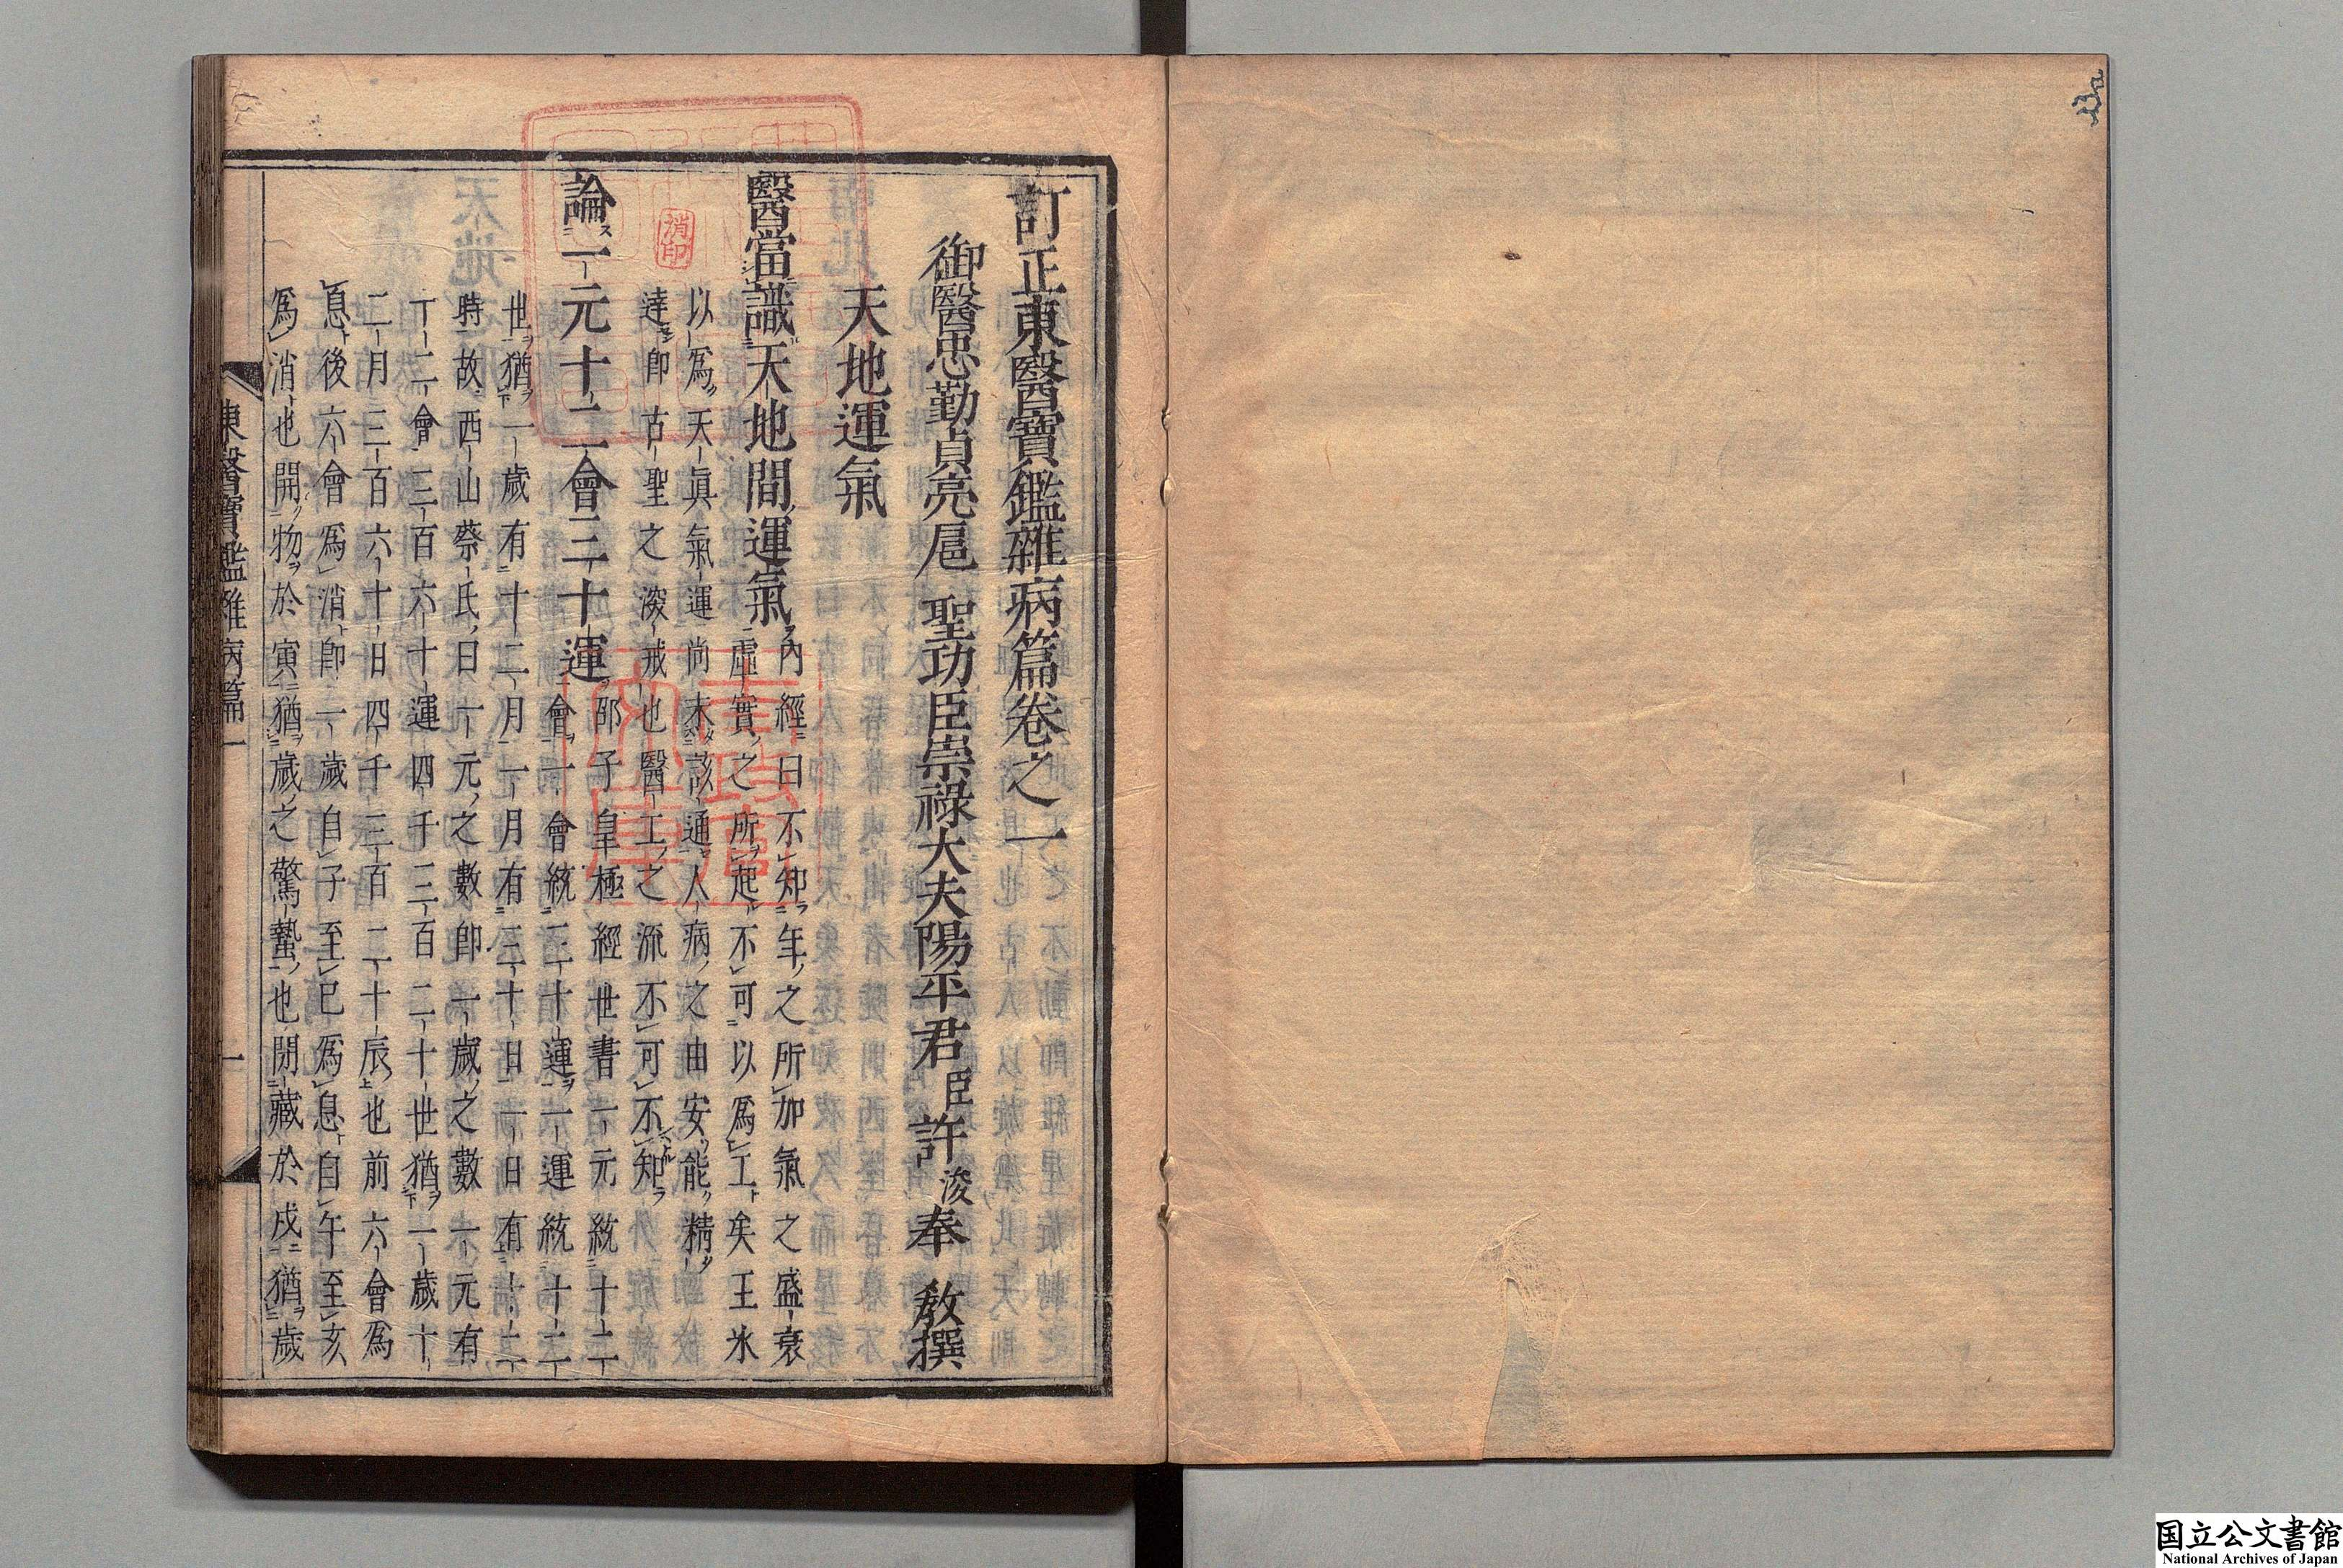 訂正東醫寶鑑雜病篇卷之一
御醫忠勤貞亮扈　聖功臣崇祿大夫陽平君臣許浚奉　教撰
天地運氣
醫當識天地間運氣
內經曰不知年之所加氣之盛衰
虛實之所起不可以爲工矣王氷
以爲天眞氣運尚未該通人病之由安能精
達卽古聖之深戒也醫工之流不可不知
論一元十二會三十運
邵子皇極經世書一元統十二
會一會統三十運一運統十二
世猶一歲有十二月一月有三十日一日有十二
時故西山蔡氏曰一元之數卽一歲之數一元有
十二會三百六十運四千三百二十世猶一歲十
二月三百六十日四千三百二十辰也前六會爲
息後六會爲消卽一歲自子至巳爲息自午至亥
爲消也開物於寅猶歲之驚蟄也閉藏於戌猶歲
東醫寶鑑雜病篇一
一
消印
国立公文書館
National Archives of Japan